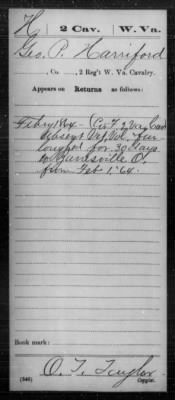 H 2 Cav. W. Va.
Geo. P. Harriford
, Co , 2 Reg't W. Va. Cavalry.
Appears on Returns as follows:
(Co. F, 2 Va. Cav)
absent Vet. Vol. fur
loughed for 30 days
to O.
from Feb 1, '64.
Book mark:
O. T. Taylor
(546) Copyist.